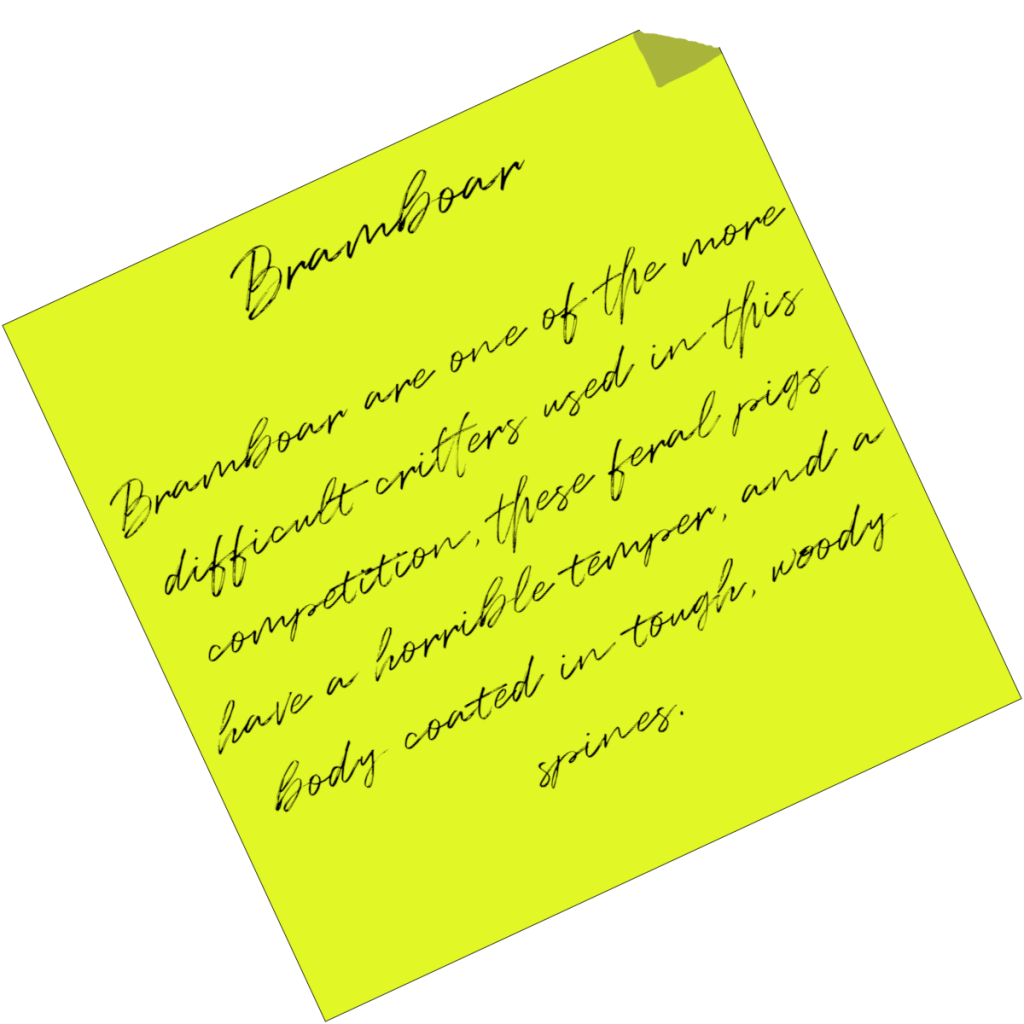 Bramboar
Bramboar are one of the more
difficult critters used in this
competition, these feral pigs
have a horrible temper, and a
body coated in tough, woody
spines.